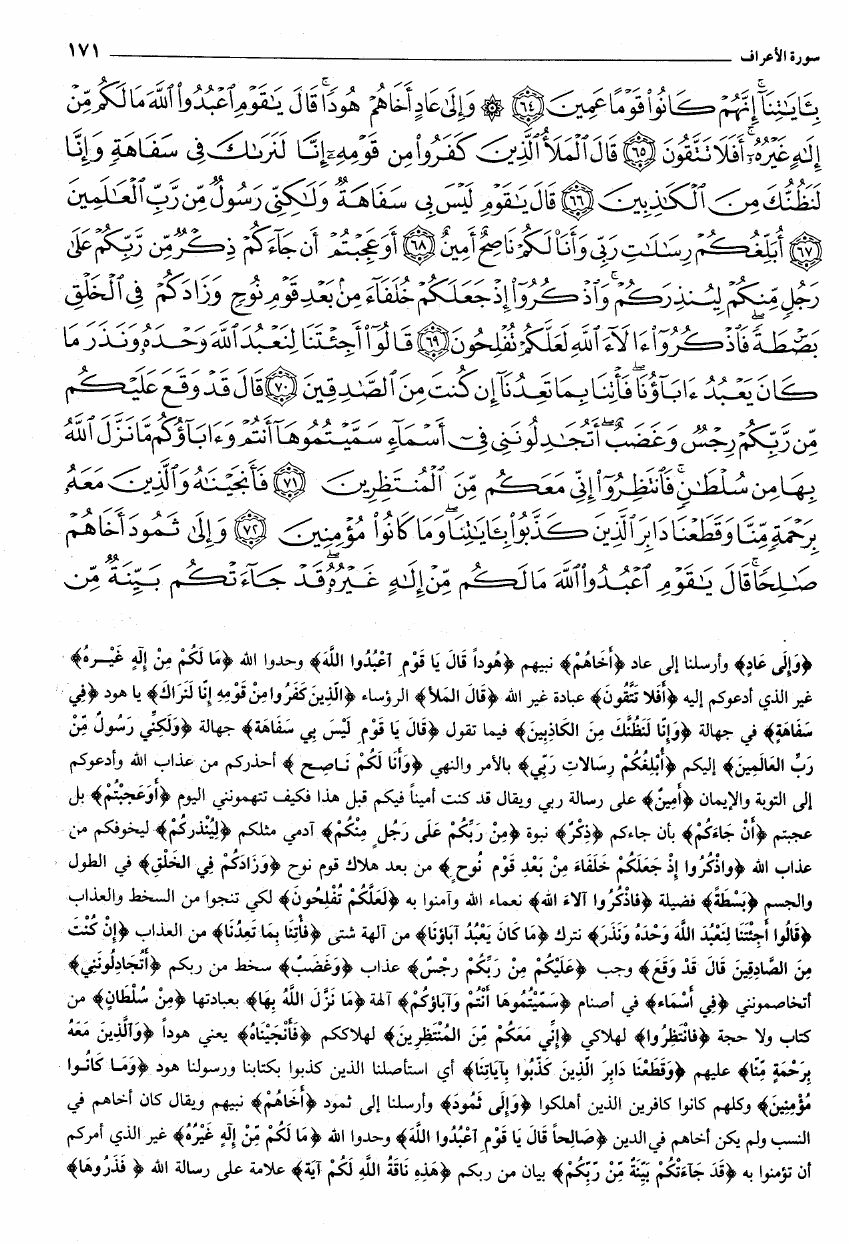 سورة الأعراف ١٧١
بِـَٔايَـٰتِنَآ ۚ إِنَّهُمْ كَانُوا۟ قَوْمًا عَمِينَ ﴿٦٤﴾ ۞ وَإِلَىٰ عَادٍ أَخَاهُمْ هُودًا ۗ قَالَ يَـٰقَوْمِ ٱعْبُدُوا۟ ٱللَّهَ مَا لَكُم مِّنْ
إِلَـٰهٍ غَيْرُهُۥٓ ۚ أَفَلَا تَتَّقُونَ ﴿٦٥﴾ قَالَ ٱلْمَلَأُ ٱلَّذِينَ كَفَرُوا۟ مِن قَوْمِهِۦٓ إِنَّا لَنَرَىٰكَ فِى سَفَاهَةٍ وَإِنَّا
لَنَظُنُّكَ مِنَ ٱلْكَـٰذِبِينَ ﴿٦٦﴾ قَالَ يَـٰقَوْمِ لَيْسَ بِى سَفَاهَةٌ وَلَـٰكِنِّى رَسُولٌ مِّن رَّبِّ ٱلْعَـٰلَمِينَ
﴿٦٧﴾ أُبَلِّغُكُمْ رِسَـٰلَـٰتِ رَبِّى وَأَنَا۠ لَكُمْ نَاصِحٌ أَمِينٌ ﴿٦٨﴾ أَوَعَجِبْتُمْ أَن جَآءَكُمْ ذِكْرٌ مِّن رَّبِّكُمْ عَلَىٰ
رَجُلٍ مِّنكُمْ لِيُنذِرَكُمْ ۚ وَٱذْكُرُوٓا۟ إِذْ جَعَلَكُمْ خُلَفَآءَ مِنۢ بَعْدِ قَوْمِ نُوحٍ وَزَادَكُمْ فِى ٱلْخَلْقِ
بَصْۜطَةً ۖ فَٱذْكُرُوٓا۟ ءَالَآءَ ٱللَّهِ لَعَلَّكُمْ تُفْلِحُونَ ﴿٦٩﴾ قَالُوٓا۟ أَجِئْتَنَا لِنَعْبُدَ ٱللَّهَ وَحْدَهُۥ وَنَذَرَ مَا
كَانَ يَعْبُدُ ءَابَآؤُنَا ۖ فَأْتِنَا بِمَا تَعِدُنَآ إِن كُنتَ مِنَ ٱلصَّـٰدِقِينَ ﴿٧٠﴾ قَالَ قَدْ وَقَعَ عَلَيْكُم
مِّن رَّبِّكُمْ رِجْسٌ وَغَضَبٌ ۖ أَتُجَـٰدِلُونَنِى فِىٓ أَسْمَآءٍ سَمَّيْتُمُوهَآ أَنتُمْ وَءَابَآؤُكُم مَّا نَزَّلَ ٱللَّهُ
بِهَا مِن سُلْطَـٰنٍ ۚ فَٱنتَظِرُوٓا۟ إِنِّى مَعَكُم مِّنَ ٱلْمُنتَظِرِينَ ﴿٧١﴾ فَأَنجَيْنَـٰهُ وَٱلَّذِينَ مَعَهُۥ
بِرَحْمَةٍ مِّنَّا وَقَطَعْنَا دَابِرَ ٱلَّذِينَ كَذَّبُوا۟ بِـَٔايَـٰتِنَا ۖ وَمَا كَانُوا۟ مُؤْمِنِينَ ﴿٧٢﴾ وَإِلَىٰ ثَمُودَ أَخَاهُمْ
صَـٰلِحًا ۗ قَالَ يَـٰقَوْمِ ٱعْبُدُوا۟ ٱللَّهَ مَا لَكُم مِّنْ إِلَـٰهٍ غَيْرُهُۥ ۖ قَدْ جَآءَتْكُم بَيِّنَةٌ مِّن
﴿وَإِلَى عَادٍ﴾ وأرسلنا إلى عاد ﴿أَخَاهُمْ﴾ نبيهم ﴿هُوداً قَالَ يَا قَوْمِ اعْبُدُوا اللَّهَ﴾ وحدوا الله ﴿مَا لَكُمْ مِنْ إِلَهٍ غَيْرهُ﴾
غير الذي أدعوكم إليه ﴿أَفَلا تَتَّقُونَ﴾ عبادة غير الله ﴿قَالَ المَلأ﴾ الرؤساء ﴿الَّذِينَ كَفَرُوا مِنْ قَوْمِهِ إِنَّا لَنَرَاكَ﴾ يا هود ﴿فِي
سَفَاهَةٍ﴾ في جهالة ﴿وَإِنَّا لَنَظُنُّكَ مِنَ الكَاذِبِينَ﴾ فيما تقول ﴿قَالَ يَا قَوْمِ لَيْسَ بِي سَفَاهَة﴾ جهالة ﴿وَلَكِنِّي رَسُولٌ مِّنْ
رَبِّ العَالَمِينَ﴾ إليكم ﴿أُبَلِّغُكُمْ رِسَالاتِ رَبِّي﴾ بالأمر والنهي ﴿وَأَنَا لَكُمْ نَاصِح﴾ أحذركم من عذاب الله وأدعوكم
إلى التوبة والإيمان ﴿أَمِينٌ﴾ على رسالة ربي ويقال قد كنت أميناً فيكم قبل هذا فكيف تتهمونني اليوم ﴿أَوَعَجِبْتُمْ﴾ بل
عجبتم ﴿أَنْ جَاءَكُمْ﴾ بأن جاءكم ﴿ذِكْرٌ﴾ نبوة ﴿مِنْ رَبِّكُمْ عَلَى رَجُلٍ مِنْكُمْ﴾ آدمي مثلكم ﴿لِيُنْذِرَكُمْ﴾ ليخوفكم من
عذاب الله ﴿واذْكُرُوا إِذْ جَعَلَكُمْ خُلَفَاءَ مِنْ بَعْدِ قَوْمِ نُوحٍ﴾ من بعد هلاك قوم نوح ﴿وَزَادَكُمْ فِي الخَلْقِ﴾ في الطول
والجسم ﴿بَسْطَةً﴾ فضيلة ﴿فَاذْكُرُوا آلاءَ الله﴾ نعماء الله وآمنوا به ﴿لَعَلَّكُمْ تُفْلِحُونَ﴾ لكي تنجوا من السخط والعذاب
﴿قَالُوا أَجِئْتَنَا لِنَعْبُدَ اللَّهَ وَحْدَهُ وَنَذَرَ﴾ نترك ﴿مَا كَانَ يَعْبُدُ آبَاؤُنَا﴾ من آلهة شتى ﴿فَأْتِنَا بِمَا تَعِدُنَا﴾ من العذاب ﴿إِنْ كُنْتَ
مِنَ الصَّادِقِينَ قَالَ قَدْ وَقَعَ﴾ وجب ﴿عَلَيْكُمْ مِنْ رَبِّكُمْ رِجْسٌ﴾ عذاب ﴿وَغَضَبٌ﴾ سخط من ربكم ﴿أَتُجَادِلُونَنِي﴾
أتخاصمونني ﴿فِي أَسْمَاء﴾ في أصنام ﴿سَمَّيْتُمُوهَا أَنْتُمْ وَآبَاؤُكُمْ﴾ آلهة ﴿مَا نَزَّلَ اللَّهُ بِهَا﴾ بعبادتها ﴿مِنْ سُلْطَانٍ﴾ من
كتاب ولا حجة ﴿فَانْتَظِرُوا﴾ لهلاكي ﴿إِنِّي مَعَكُمْ مِّنَ المُنْتَظِرِينَ﴾ لهلاككم ﴿فَأَنْجَيْنَاهُ﴾ يعني هوداً ﴿وَالَّذِينَ مَعَهُ
بِرَحْمَةٍ مِّنَّا﴾ عليهم ﴿وَقَطَعْنَا دَابِرَ الَّذِينَ كَذَّبُوا بِآيَاتِنَا﴾ أي استأصلنا الذين كذبوا بكتابنا ورسولنا هود ﴿وَمَا كَانُوا
مُؤْمِنِينَ﴾ وكلهم كانوا كافرين الذين أهلكوا ﴿وَإِلَى ثَمُودَ﴾ وأرسلنا إلى ثمود ﴿أَخَاهُمْ﴾ نبيهم ويقال كان أخاهم في
النسب ولم يكن أخاهم في الدين ﴿صَالِحاً قَالَ يَا قَوْمِ اعْبُدُوا اللَّهَ﴾ وحدوا الله ﴿مَا لَكُمْ مِّنْ إِلَهٍ غَيْرُهُ﴾ غير الذي أمركم
أن تؤمنوا به ﴿قَدْ جَآءَتْكُمْ بَيِّنَةٌ مِّنْ رَّبِّكُمْ﴾ بيان من ربكم ﴿هَذِهِ نَاقَةُ اللَّهِ لَكُمْ آيَة﴾ علامة على رسالة الله ﴿فَذَرُوهَا﴾